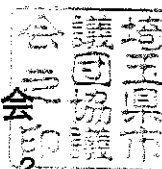 埼玉県市
議団協議
会之印
会